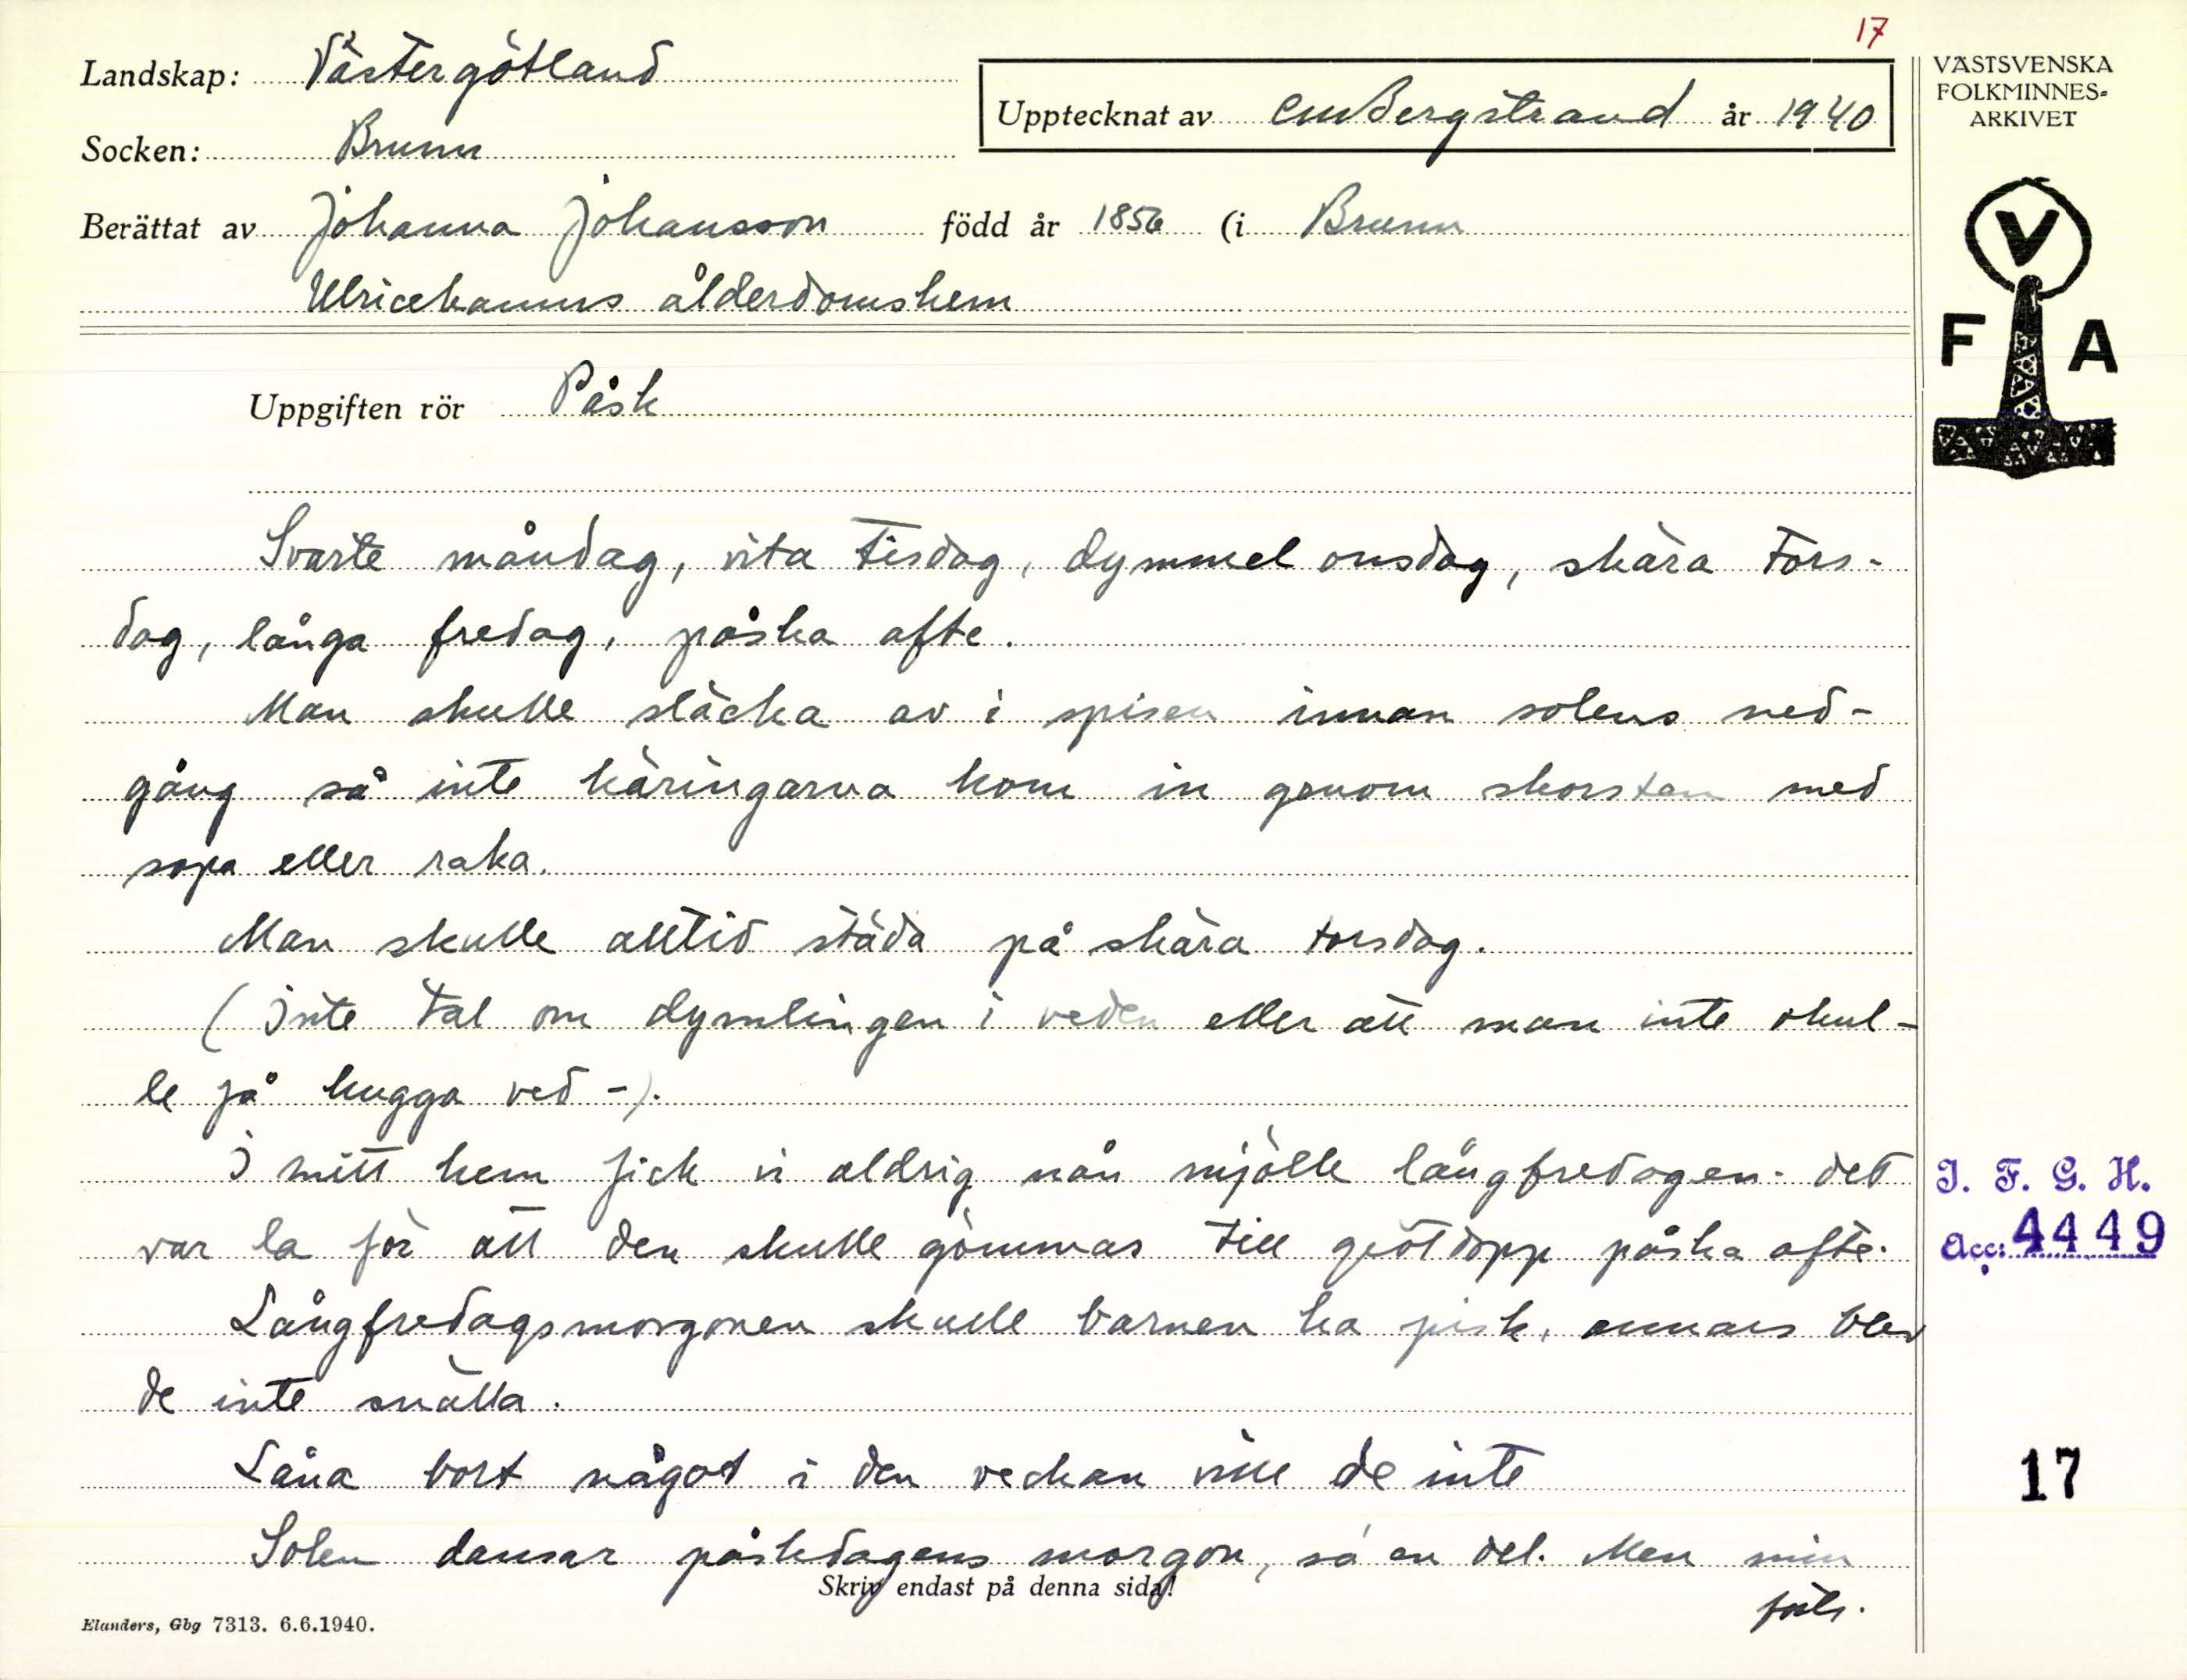 17
Landskap: Västergötland
Upptecknat av CMBergstrand år 1940
Socken: Brunn
Berättat av Johanna Johansson född år 1856 (i Brunn
Ulricehamns ålderdomshem
Uppgiften rör Påsk
Svarte måndag, vita tisdag, dymmel onsdag, skära tors-
dag, långa fredag, påska afte.
Man skulle släcka av i spisen innan solens ned-
gång så inte käringarna kom in genom skorsten med
sopa eller raka.
Man skulle alltid städa på skära torsdag.
(Inte tal om dymlingen i veden eller att man inte skul-
le få hugga ved -).
I mitt hem fick vi aldrig nån mjölk långfredagen. det
var la för att den skulle gömmas till grötdopp påska afte.
Långfredagsmorgonen skulle barnen ha pisk, annars blev
de inte snälla.
Låna bort något i den veckan ville de inte
Solen dansar påskdagens morgon, sa en del. Men min
Skriv endast på denna sida!
forts.
Elanders, Gbg 7313. 6.6.1940.
VÄSTSVENSKA
FOLKMINNES=
ARKIVET
V
F A
I. F. G. H.
Acc: 4449
17